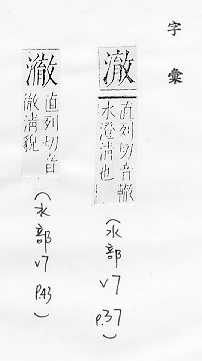 字彙
澈
直列切音轍
水澄清也
(水部
v7
p.37)
澈
直列切音
徹清貌
(水部
v7
p.43)